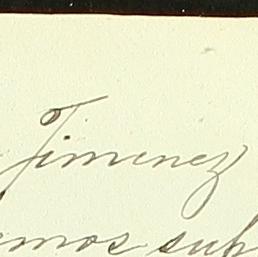 Jimenez
emos sup